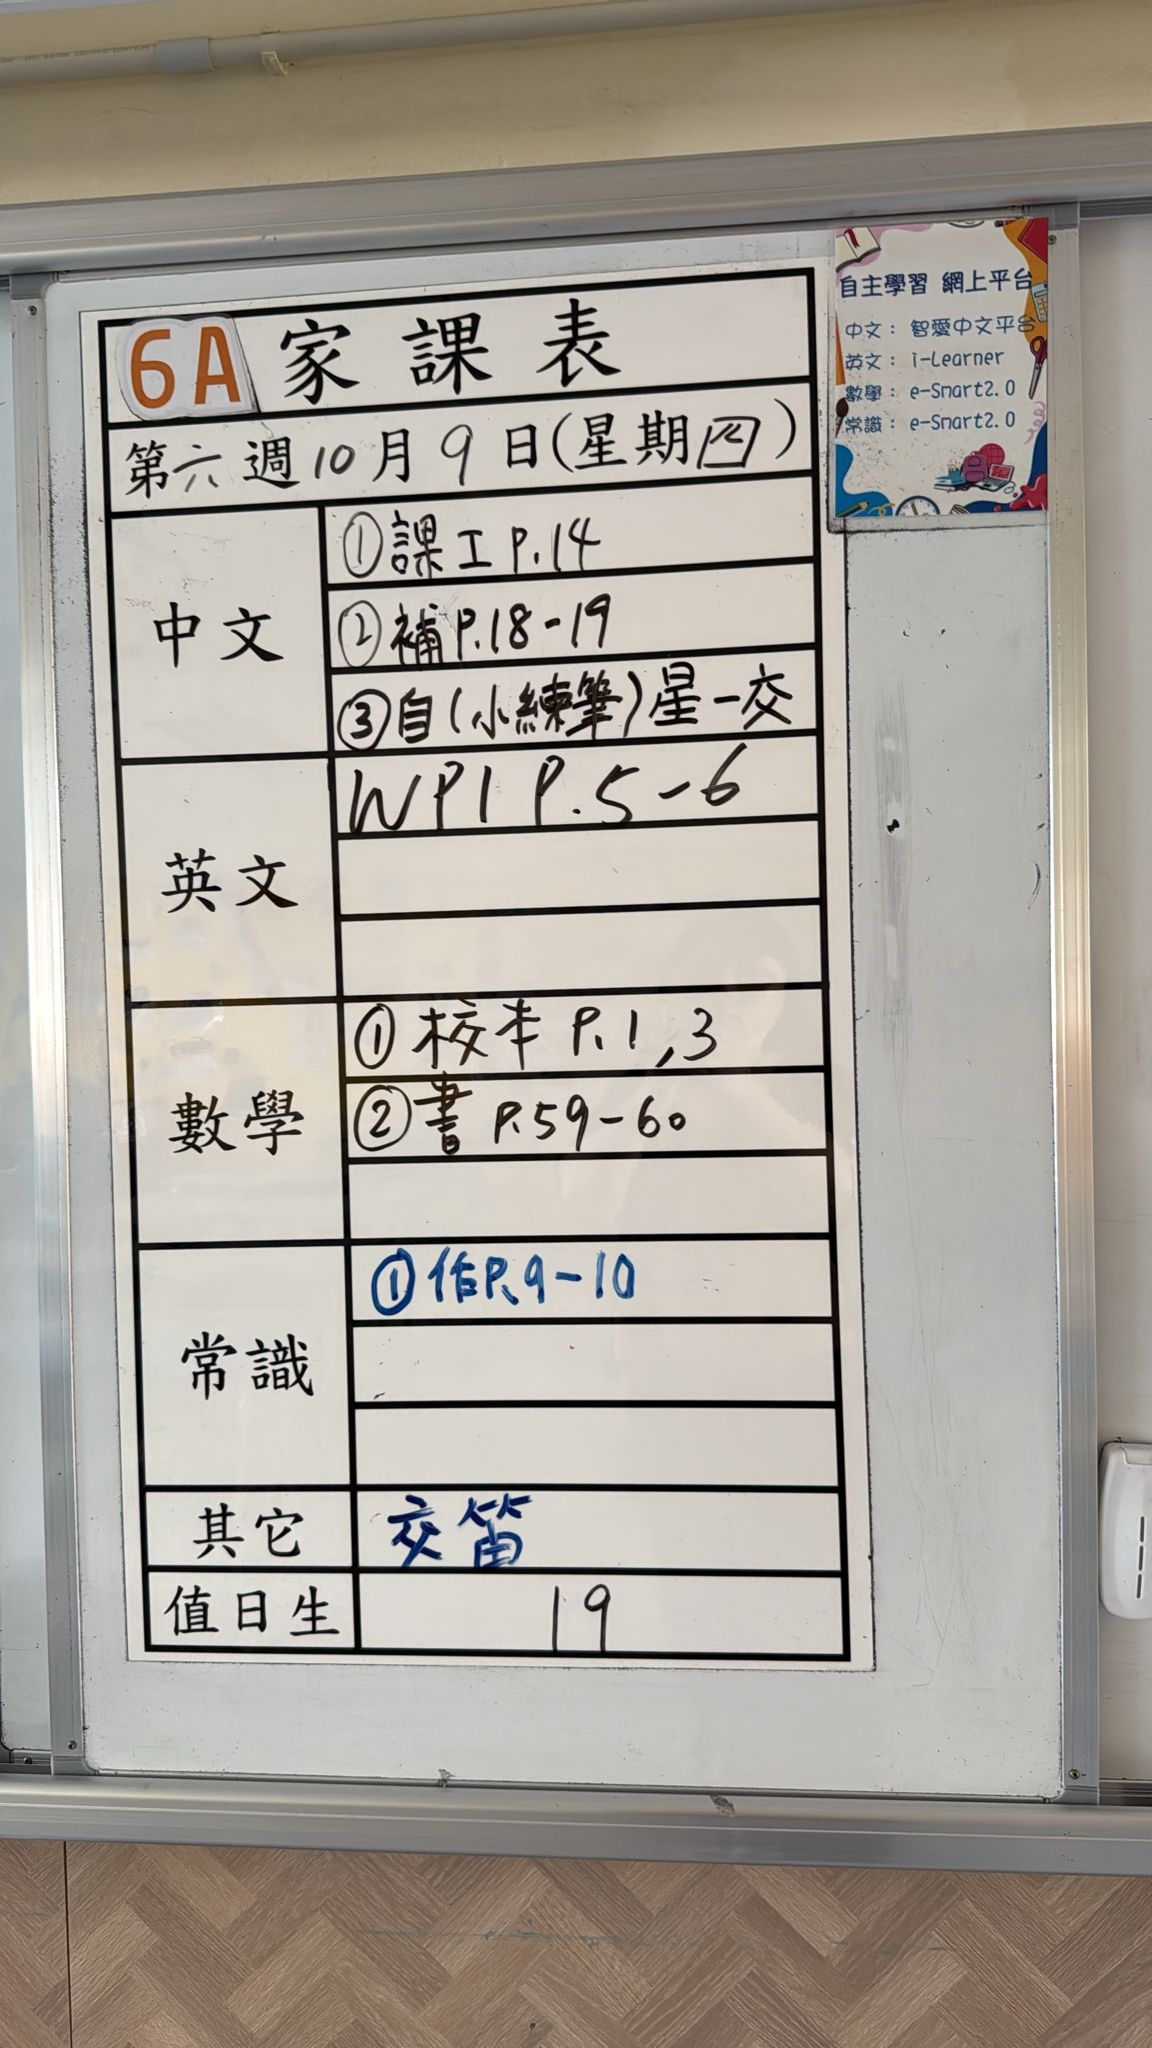 6A 家課表
第六週10月9日(星期四)
中文
①課工P.14
②補P.18-19
③自(小練筆)星一交
英文
WP1 P.5-6
數學
①校本 P.1,3
②書 P.59-60
常識
①作P.9-10
其它
交笛
值日生
19
自主學習 網上平台
中文：智愛中文平台
英文：i-Learner
數學：e-Smart2.0
常識：e-Smart2.0